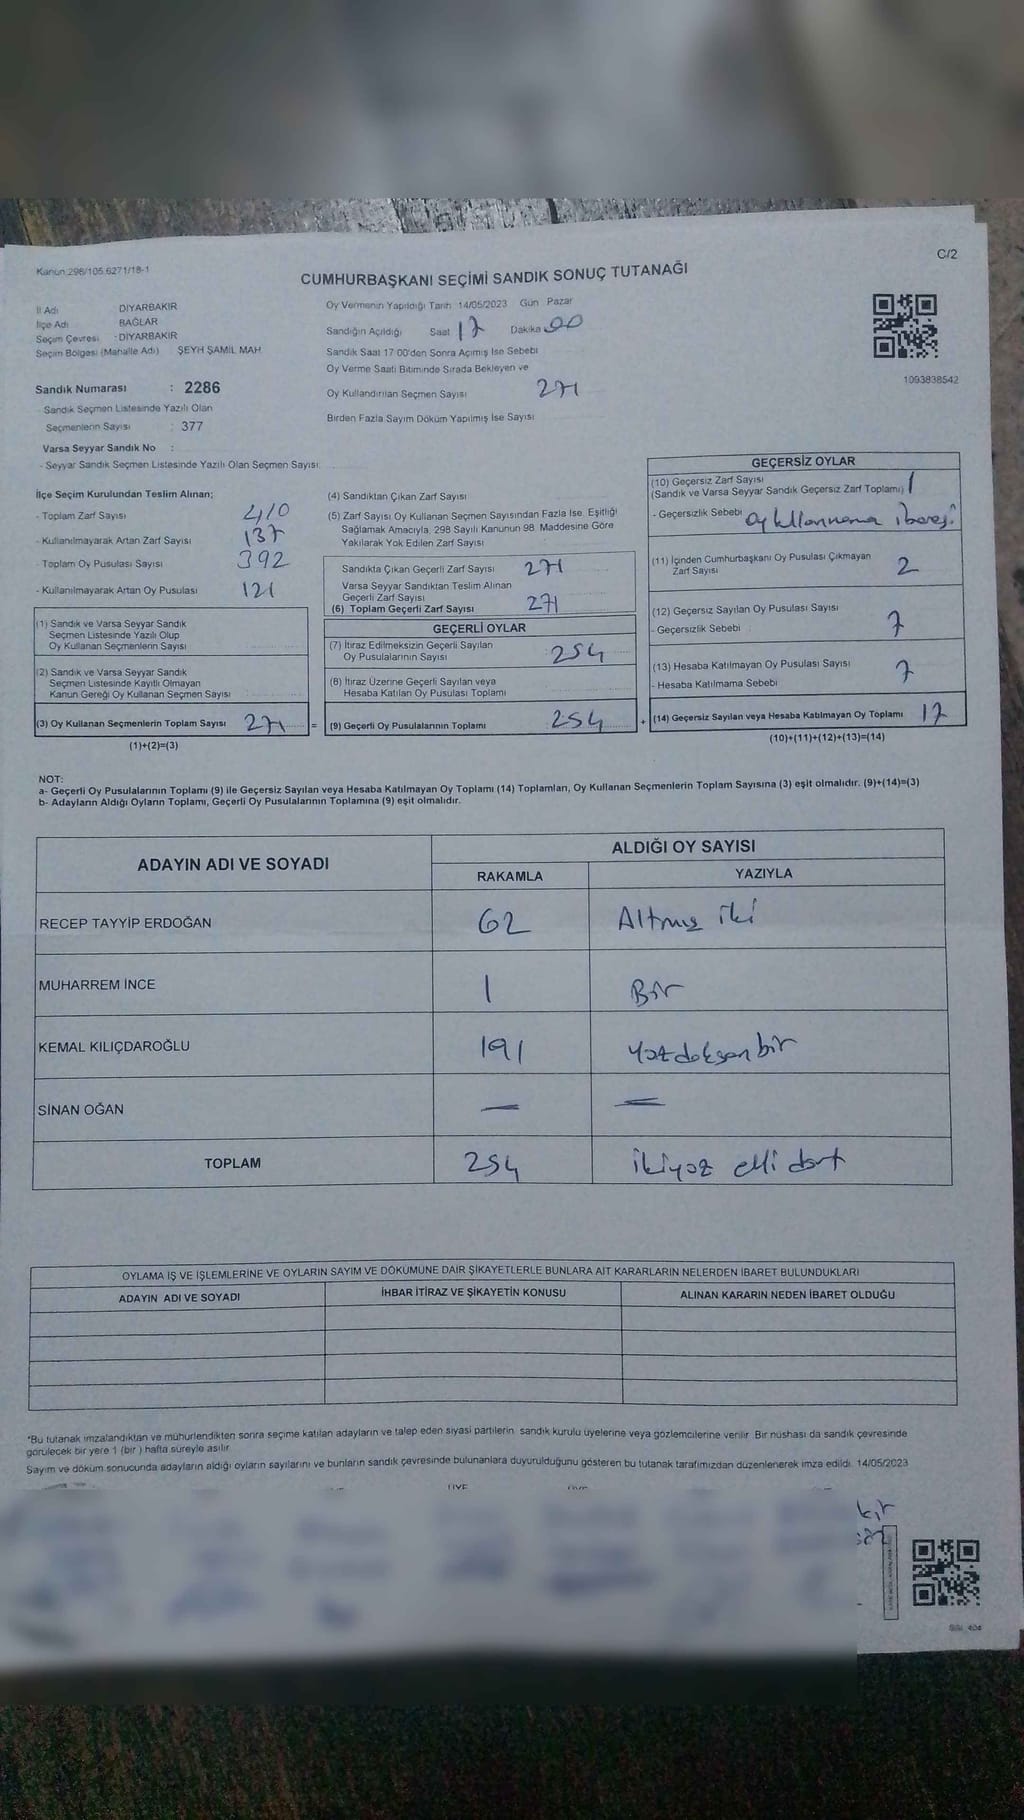 Kanun:298/105,6271/18-1
C/2
CUMHURBAŞKANI SEÇİMİ SANDIK SONUÇ TUTANAĞI
İl Adı DİYARBAKIR
İlçe Adı BAĞLAR
Seçim Çevresi DİYARBAKIR
Seçim Bölgesi (Mahalle Adı) ŞEYH ŞAMİL MAH
Sandık Numarası : 2286
Sandık Seçmen Listesinde Yazılı Olan
Seçmenlerin Sayısı : 377
Varsa Seyyar Sandık No :
- Seyyar Sandık Seçmen Listesinde Yazılı Olan Seçmen Sayısı
Oy Vermenin Yapıldığı Tarih 14/05/2023 Gün Pazar
Sandığın Açıldığı Saat 17 Dakika 00
Sandık Saat 17 00'den Sonra Açılmış İse Sebebi
Oy Verme Saati Bitiminde Sırada Bekleyen ve
Oy Kullandırılan Seçmen Sayısı 271
Birden Fazla Sayım Döküm Yapılmış İse Sayısı
1093838542
İlçe Seçim Kurulundan Teslim Alınan;
- Toplam Zarf Sayısı 410
- Kullanılmayarak Artan Zarf Sayısı 137
- Toplam Oy Pusulası Sayısı 392
- Kullanılmayarak Artan Oy Pusulası 121
(1) Sandık ve Varsa Seyyar Sandık
Seçmen Listesinde Yazılı Olup
Oy Kullanan Seçmenlerin Sayısı
(2) Sandık ve Varsa Seyyar Sandık
Seçmen Listesinde Kayıtlı Olmayan
Kanun Gereği Oy Kullanan Seçmen Sayısı
(3) Oy Kullanan Seçmenlerin Toplam Sayısı 271 =
(1)+(2)=(3)
(4) Sandıktan Çıkan Zarf Sayısı
(5) Zarf Sayısı Oy Kullanan Seçmen Sayısından Fazla İse, Eşitliği
Sağlamak Amacıyla, 298 Sayılı Kanunun 98. Maddesine Göre
Yakılarak Yok Edilen Zarf Sayısı
Sandıkta Çıkan Geçerli Zarf Sayısı 271
Varsa Seyyar Sandıktan Teslim Alınan
Geçerli Zarf Sayısı
(6) Toplam Geçerli Zarf Sayısı 271
GEÇERLİ OYLAR
(7) İtiraz Edilmeksizin Geçerli Sayılan
Oy Pusulalarının Sayısı 254
(8) İtiraz Üzerine Geçerli Sayılan veya
Hesaba Katılan Oy Pusulası Toplamı
(9) Geçerli Oy Pusulalarının Toplamı 254 +
GEÇERSİZ OYLAR
(10) Geçersiz Zarf Sayısı
(Sandık ve Varsa Seyyar Sandık Geçersiz Zarf Toplamı) 1
- Geçersizlik Sebebi oy kullanmama ibaresi
(11) İçinden Cumhurbaşkanı Oy Pusulası Çıkmayan
Zarf Sayısı 2
(12) Geçersiz Sayılan Oy Pusulası Sayısı
- Geçersizlik Sebebi 7
(13) Hesaba Katılmayan Oy Pusulası Sayısı
- Hesaba Katılmama Sebebi 7
(14) Geçersiz Sayılan veya Hesaba Katılmayan Oy Toplamı 17
(10)+(11)+(12)+(13)=(14)
NOT:
a- Geçerli Oy Pusulalarının Toplamı (9) ile Geçersiz Sayılan veya Hesaba Katılmayan Oy Toplamı (14) Toplamları, Oy Kullanan Seçmenlerin Toplam Sayısına (3) eşit olmalıdır. (9)+(14)=(3)
b- Adayların Aldığı Oyların Toplamı, Geçerli Oy Pusulalarının Toplamına (9) eşit olmalıdır.
ADAYIN ADI VE SOYADI
ALDIĞI OY SAYISI
RAKAMLA YAZIYLA
RECEP TAYYİP ERDOĞAN 62 Altmış iki
MUHARREM İNCE 1 Bir
KEMAL KILIÇDAROĞLU 191 Yüzdoksan bir
SİNAN OĞAN — —
TOPLAM 254 ikiyüz elli dört
OYLAMA İŞ VE İŞLEMLERİNE VE OYLARIN SAYIM VE DÖKÜMÜNE DAİR ŞİKAYETLERLE BUNLARA AİT KARARLARIN NELERDEN İBARET BULUNDUKLARI
ADAYIN ADI VE SOYADI İHBAR İTİRAZ VE ŞİKAYETİN KONUSU ALINAN KARARIN NEDEN İBARET OLDUĞU
*Bu tutanak imzalandıktan ve mühürlendikten sonra seçime katılan adayların ve talep eden siyasi partilerin sandık kurulu üyelerine veya gözlemcilerine verilir. Bir nüshası da sandık çevresinde
görülecek bir yere 1 (bir) hafta süreyle asılır
Sayım ve döküm sonucunda adayların aldığı oyların sayılarını ve bunların sandık çevresinde bulunanlara duyurulduğunu gösteren bu tutanak tarafımızdan düzenlenerek imza edildi. 14/05/2023